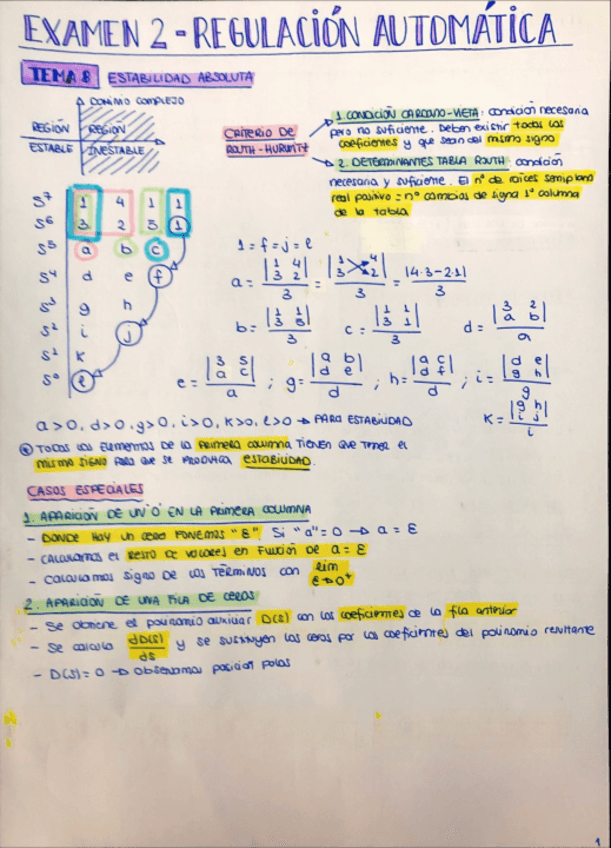 EXAMEN 2 - REGULACIÓN AUTOMÁTICA
TEMA 8 ESTABILIDAD ABSOLUTA
DOMINIO COMPLEJO
REGIÓN REGIÓN
ESTABLE INESTABLE
CRITERIO DE
ROUTH-HURWITZ
1. CONDICIÓN CARDANO-VIETA: condición necesaria
pero no suficiente. Deben existir todos los
coeficientes y que sean del mismo signo
2. DETERMINANTES TABLA ROUTH: condición
necesaria y suficiente. El nº de raíces semiplano
real positivo = nº cambios de signo 1ª columna
de la tabla
S⁷ 1 4 1 1
S⁶ 3 2 5 1
S⁵ a b c
S⁴ d e f
S³ g h
S² i j
S¹ K
S⁰ l
1 = f = j = l
a = |1 4 3 2| / 3 = |1 4 3 2| / 3 = |4·3-2·1| / 3
b = |1 1 3 5| / 3 c = |1 1 3 1| / 3 d = |3 2 a b| / a
e = |3 5 a c| / a ; g = |a b d e| / d ; h = |a c d f| / d ; i = |d e g h| / g
K = |g h i j| / i
a>0, d>0, g>0, i>0, K>0, l>0 → PARA ESTABILIDAD
TODOS LOS ELEMENTOS DE LA PRIMERA COLUMNA TIENEN QUE TENER EL
MISMO SIGNO PARA QUE SE PRODUZCA ESTABILIDAD.
CASOS ESPECIALES
1. APARICIÓN DE UN 'O' EN LA PRIMERA COLUMNA
- DONDE HAY UN CERO PONEMOS "ε" Si "a"=0 → a = ε
- CALCULAMOS EL RESTO DE VALORES EN FUNCIÓN DE a = ε
- CALCULAMOS SIGNO DE LOS TÉRMINOS CON lim ε→0⁺
2. APARICIÓN DE UNA FILA DE CEROS
- Se obtiene el polinomio auxiliar D(s) con los coeficientes de la fila anterior
- Se calcula dD(s)/ds y se sustituyen los ceros por los coeficientes del polinomio resultante
- D(s)=0 → Observamos posición polos
1